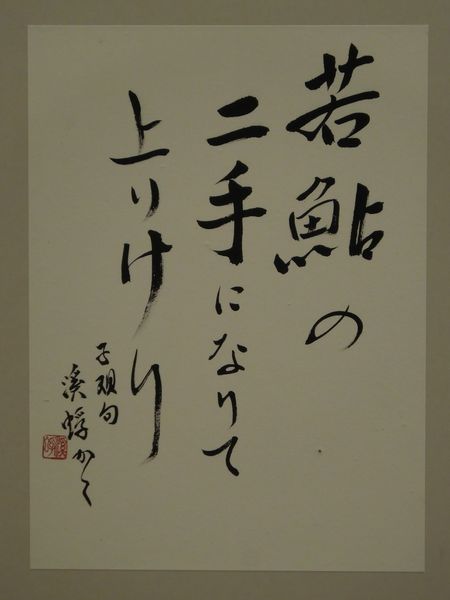 若鮎の
二手になりて
上りけり
子規句
溪 かく